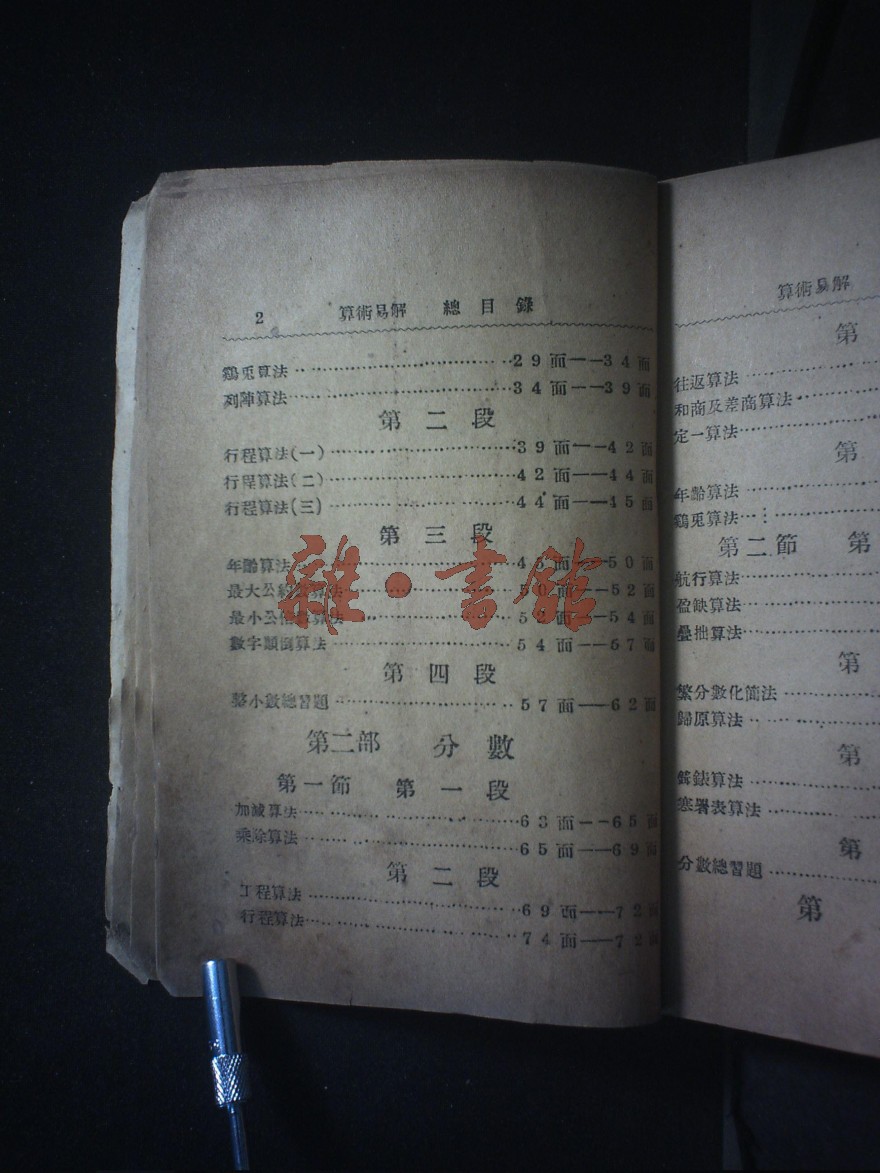 2 算術易解 總目錄
鷄兎算法 29面——34面
列陣算法 34面——39面
第二段
行程算法(一) 39面——42面
行程算法(二) 42面——44面
行程算法(三) 44面——45面
第三段
年齡算法 45面——50面
最大公約數算法 50面——52面
最小公倍數算法 52面——54面
數字顚倒算法 54面——57面
第四段
整小數總習題 57面——62面
第二部 分數
第一節 第一段
加减算法 63面——65面
乘除算法 65面——69面
第二段
工程算法 69面——72面
行程算法 74面——72面
雜·書館
算術易解
第
往返算法
和商及差商算法
定一算法
第
年齡算法
鷄兎算法
第二節 第
航行算法
盈缺算法
疊拙算法
第
繁分數化簡法
歸原算法
第
算法
寒暑表算法
第
分數總習題
第